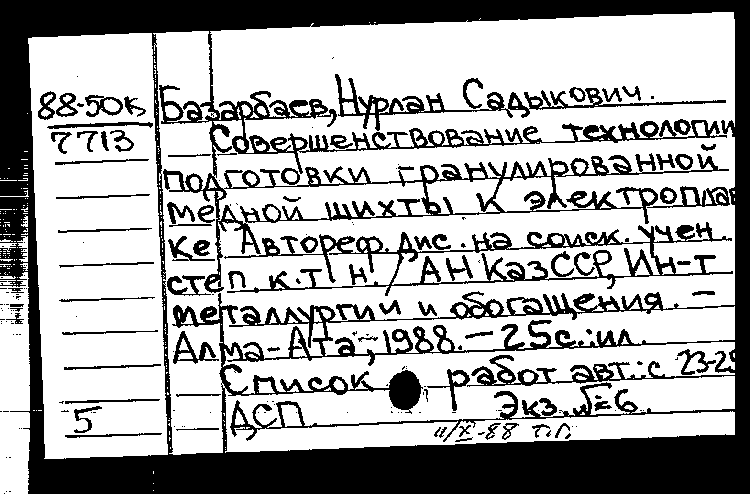 88-50К Базарбаев, Нурлан Садыкович.
7713 Совершенствование технологии
подготовки гранулированной
медной шихты к электроплав
ке Автореф. дис. на соиск. учен.
степ. к.т.н. / АН КазССР, Ин-т
металлургии и обогащения. –
Алма-Ата, 1988. – 25с.:ил.
Список работ авт.: с 23-25
5 ДСП. Экз. №=6.
11/X-88